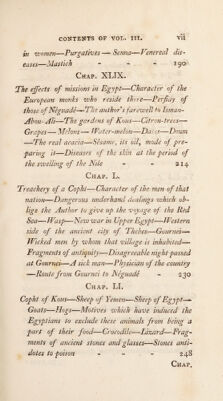 CONTENTS OF VOL. III. vii
in women—Purgatives — Senna—Venereal dis-
eases—Mastich - - - 190
CHAP. XLIX.
The effects of missions in Egypt—Character of the
European monks who reside there—Perfidy of
those of Néguadé—The author's farewell to Isman-
Abou-Ali—The gardens of Kous—Citron-trees—
Grapes—Melons—Water-melon—Dates—Doum
—The real acacia—Sesame, its oil, mode of pre-
paring it—Diseases of the skin at the period of
the swelling of the Nile - - 214
CHAP. L.
Treachery of a Copht—Character of the men of that
nation—Dangerous underhand dealings which ob-
lige the Author to give up the voyage of the Red
Sea—Wasp—New war in Upper Egypt—Western
side of the ancient city of Thebes—Gournei—
Wicked men by whom that village is inhabited—
Fragments of antiquity—Disagreeable night passed
at Gournei—A sick man—Physician of the country
—Route from Gournei to Néguadé - 230
CHAP. LI.
Copht of Kous—Sheep of Yemen—Sheep of Egypt—
Goats—Hogs—Motives which have induced the
Egyptians to exclude these animals from being a
part of their food—Crocodile—Lizard—Frag-
ments of ancient stones and glasses—Stones anti-
dotes to poison - - - 248
CHAP.